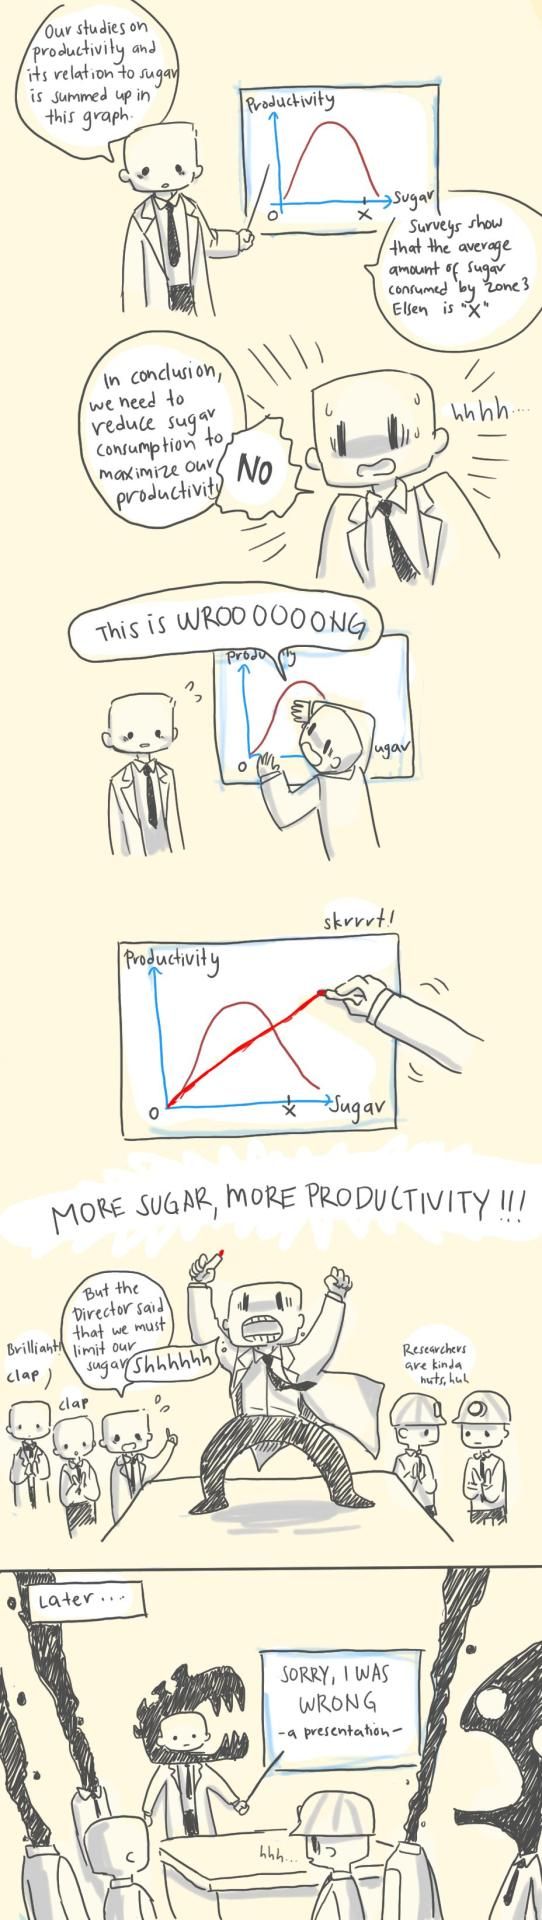 Our studies on
productivity and
its relation to sugar
is summed up in
this graph.
Productivity
Sugar
0
X
Surveys show
that the average
amount of sugar
consumed by zone 3
Elsen is "X"
In conclusion,
we need to
reduce sugar
consumption to
maximize our
productivit
NO
hhhh....
This is WROOOOOONG
Produ ty
ugar
0
skrrrt!
Productivity
0
X
Sugar
MORE SUGAR, MORE PRODUCTIVITY!!!
But the
Director said
that we must
limit our
sugar
Shhhhhh
Brilliant!
clap
clap
Researchers
are kinda
nuts, huh
Later...
SORRY, I WAS
WRONG
-a presentation-
hhh...